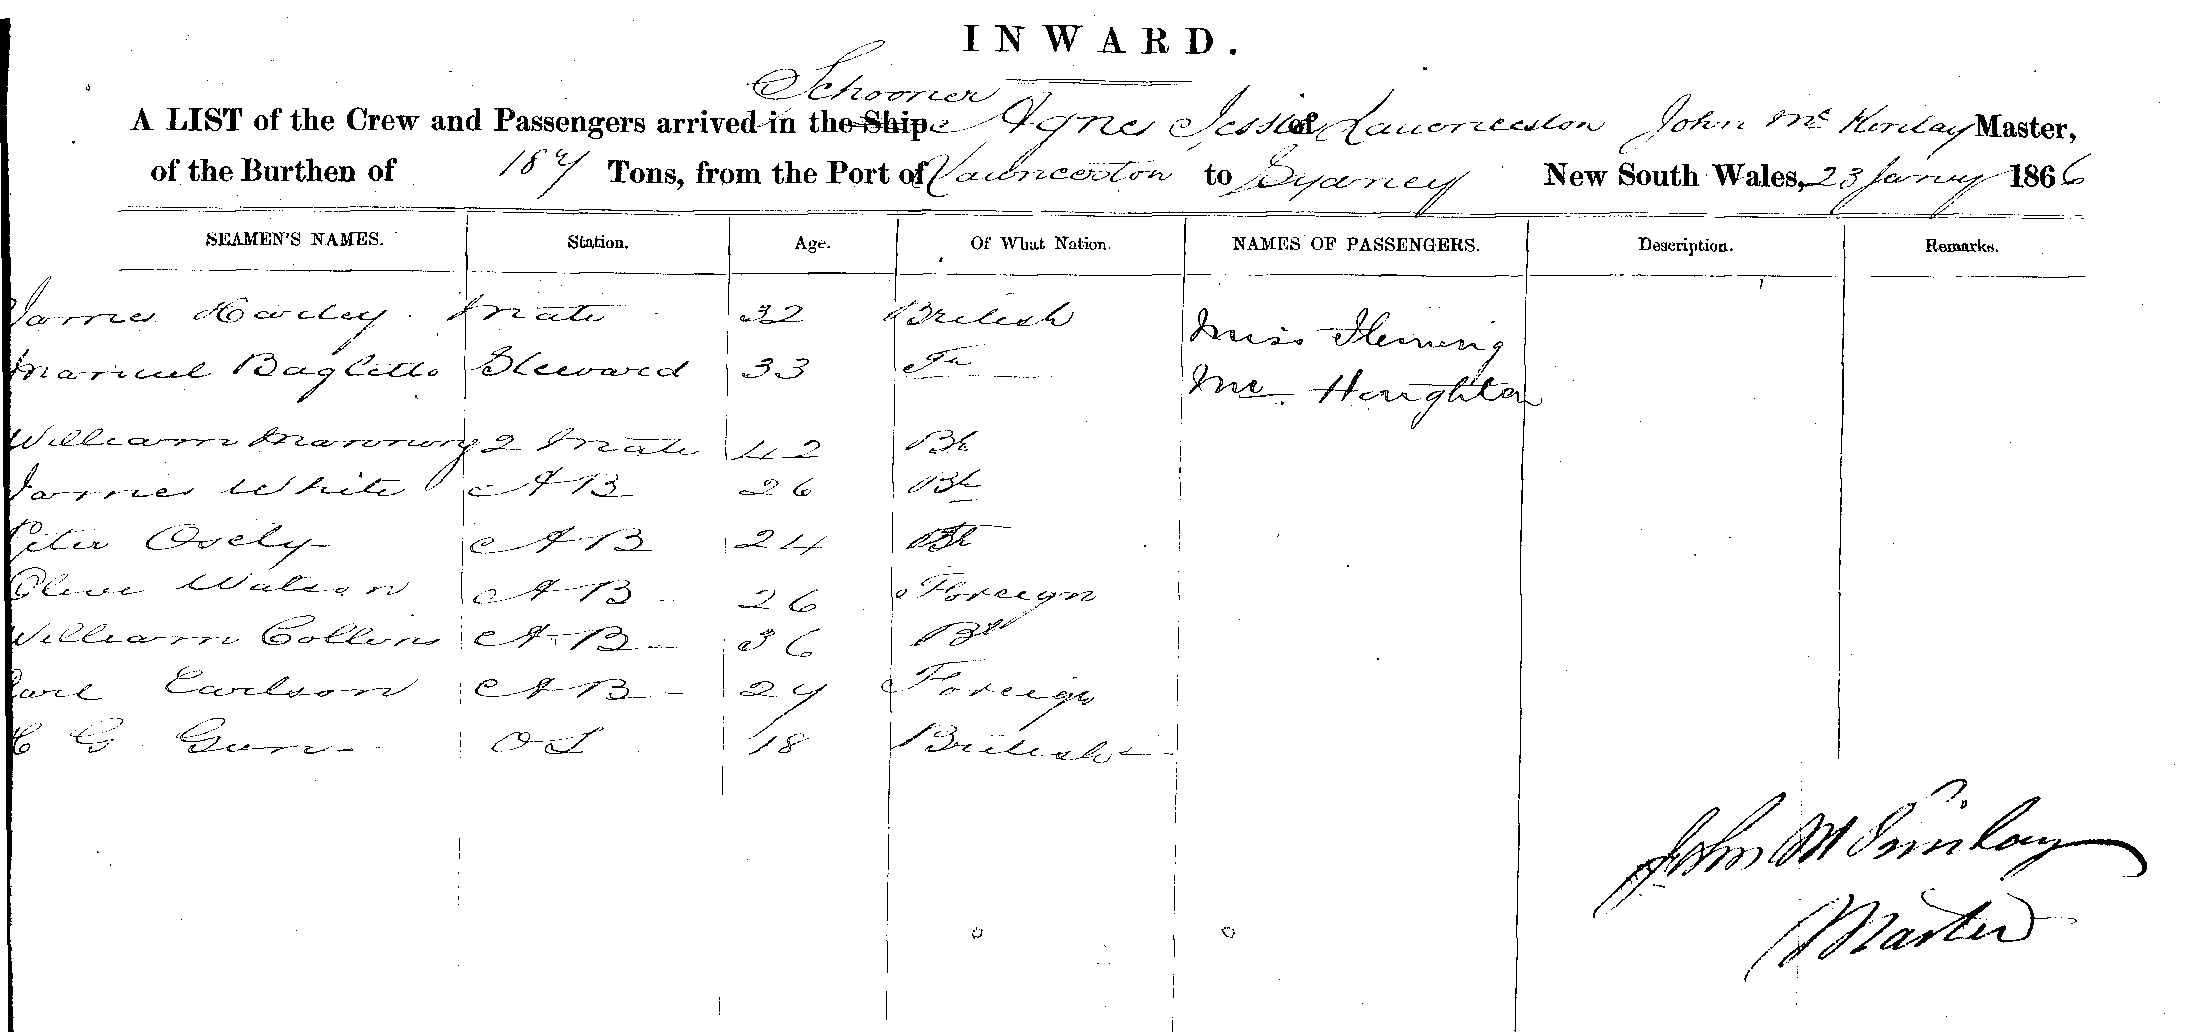 INWARD.
Schooner
A LIST of the Crew and Passengers arrived in the Ship Agnes Jessie of Launceston John Mc Kinlay Master,
of the Burthen of 187 Tons, from the Port of Launceston to Sydney New South Wales, 23 Janry 1866
SEAMEN'S NAMES. Station. Age. Of What Nation. NAMES OF PASSENGERS. Description. Remarks.
James Mate 32 British Miss Fleming
Manuel Bagletto Steward 33 Houghton
William Manning 2 Mate 42 Bh
James White AB 26 Bh
Peter Osely AB 24
Watson AB 26 Foreign
William Collins AB 36
Carl Carlson AB 27 Foreign
G Gun OS 18 British
John Mc Kinlay
Master